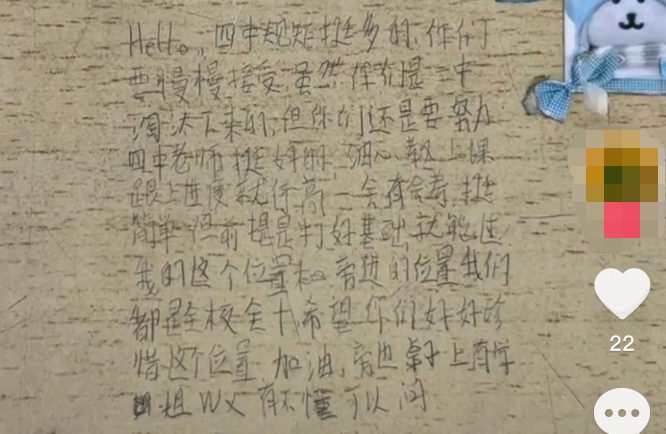 Hello,四中规矩挺多的,你们
要慢慢接受,虽然你们是二中
淘汰下来的,但你们还是要努力
四中老师挺好的,细心,教上课
跟上进度就行,高一会有会考,挺
简单 但前提是打好基础,就能过
我的这个位置和旁边的位置我们
都是全校全十,希望你们好好珍
惜这个位置 加油,旁边桌子上有学
姐 WX 有不懂可以问
22